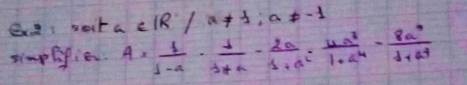 Ex2: soit a ∈ IR / a ≠ 1 ; a ≠ -1
simplifier. A = 1/(1-a) - 1/(1+a) - 2a/(1+a²) - 4a³/(1+a⁴) - 8a⁷/(1+a⁸)